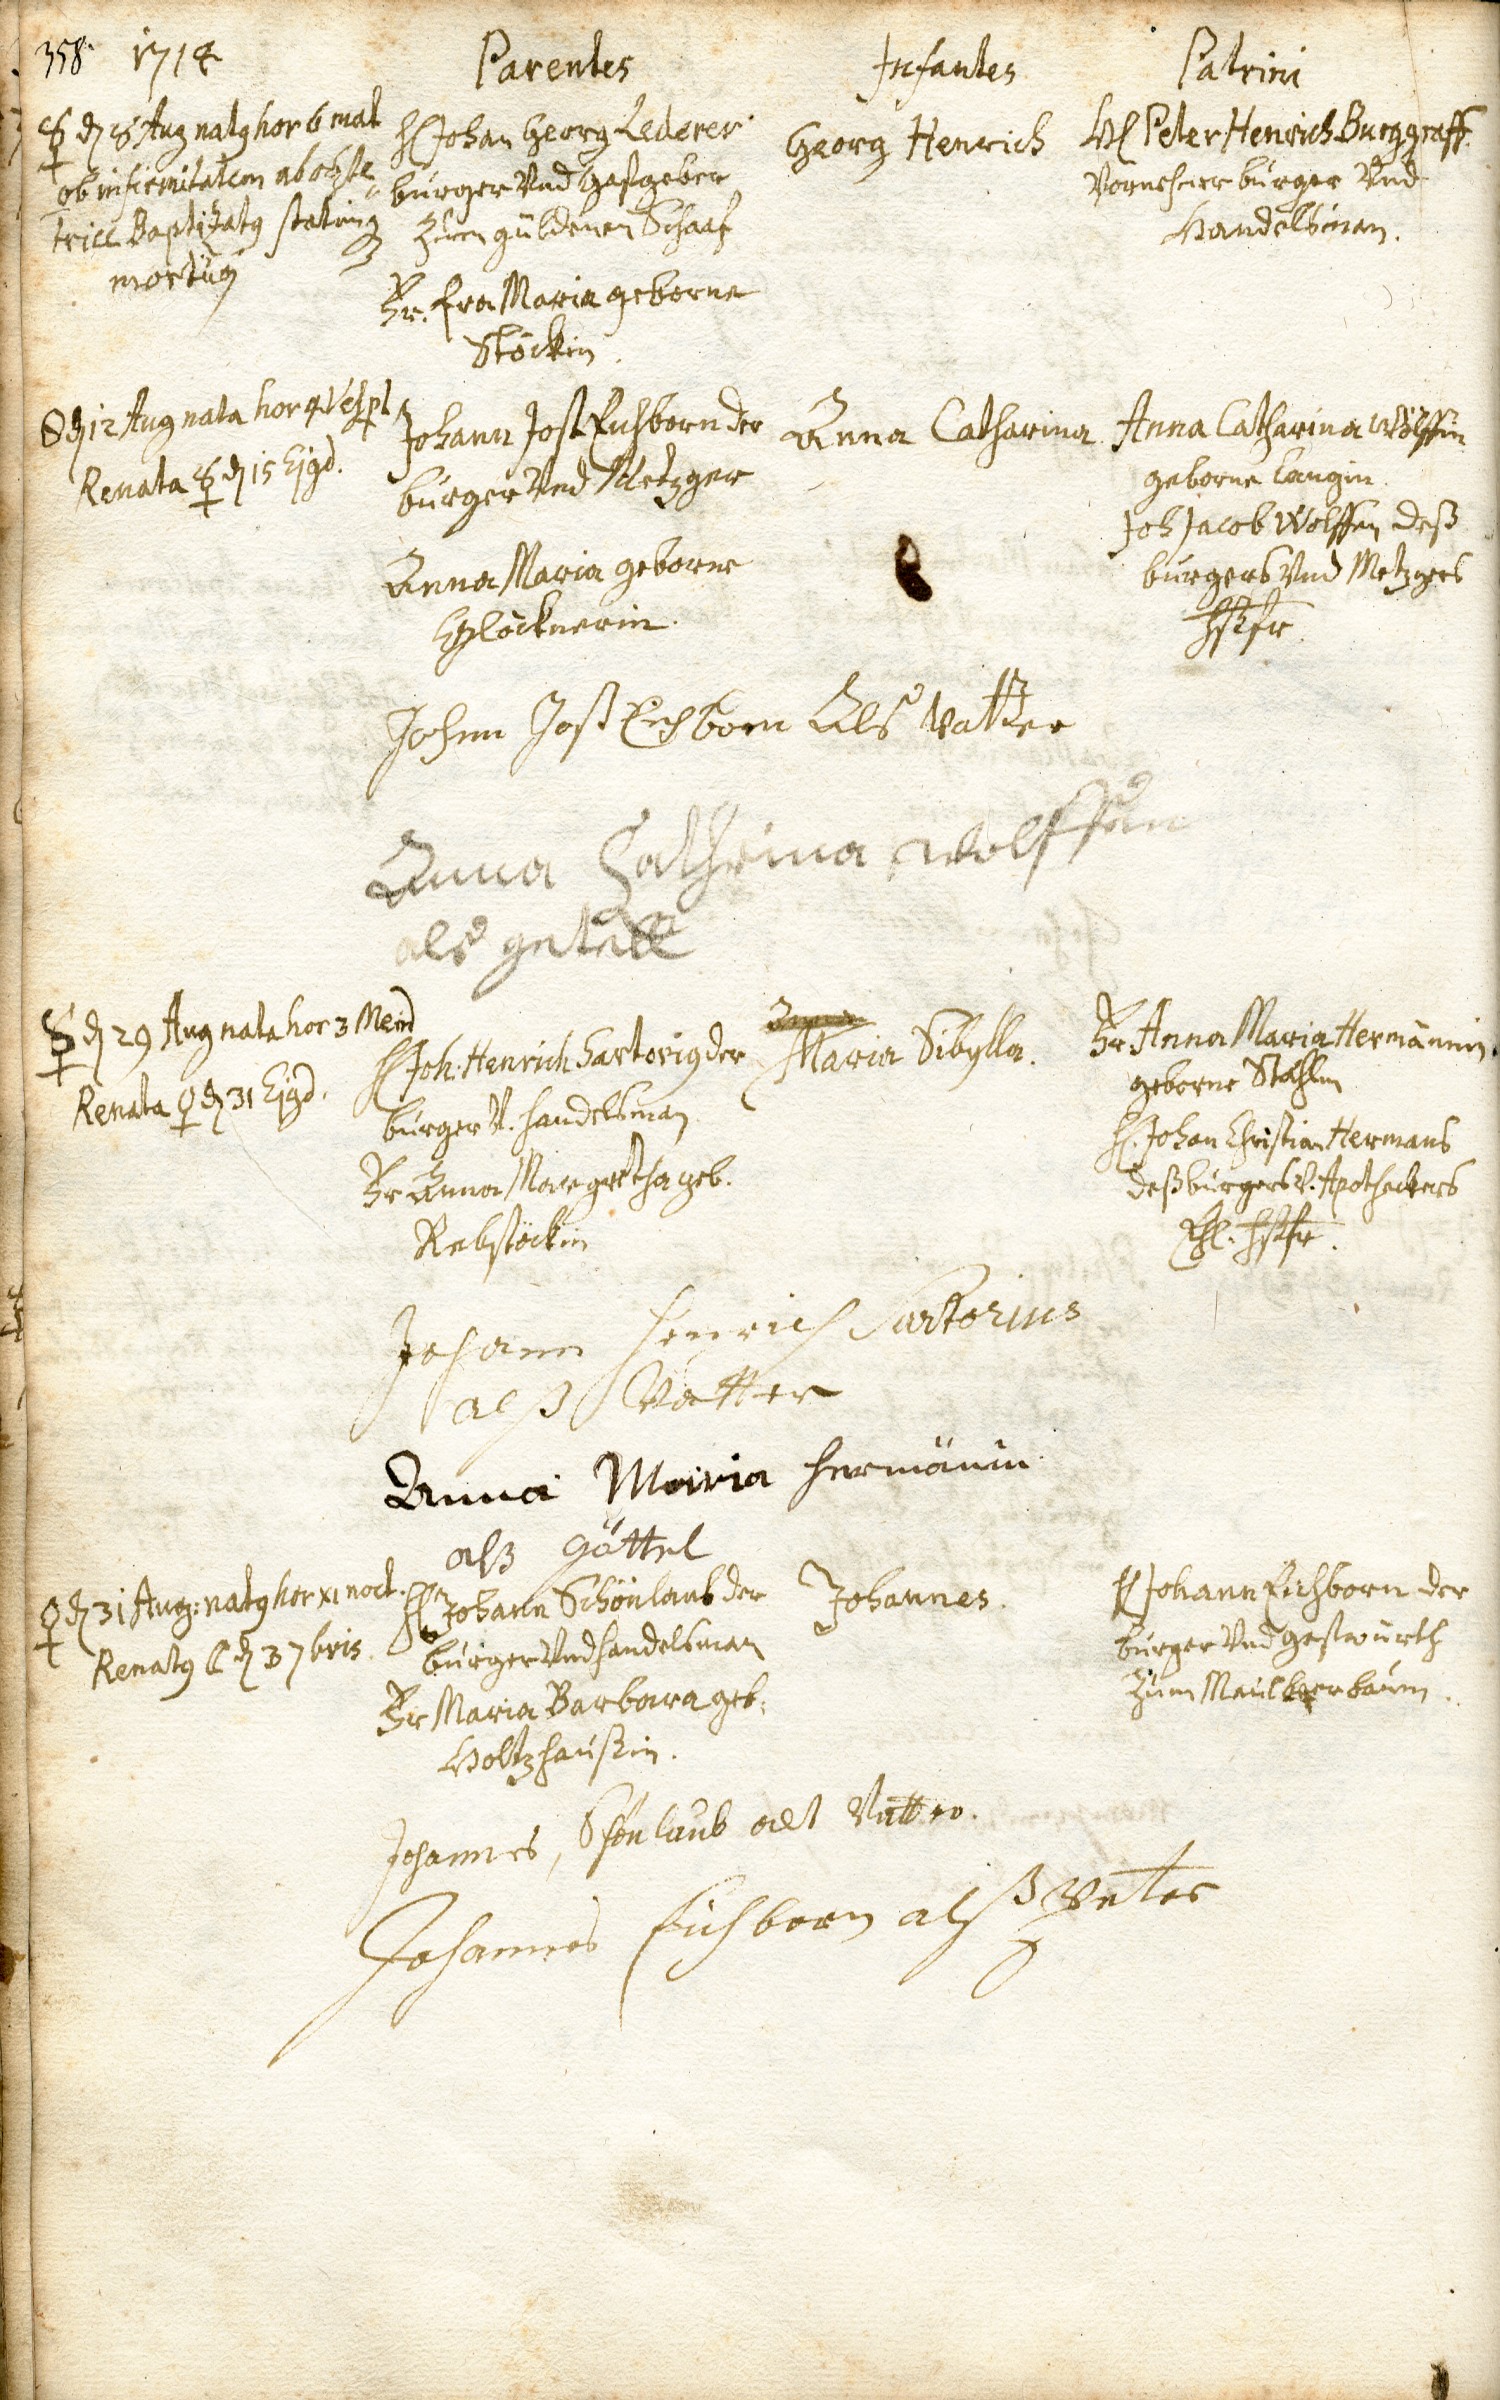 358. 1714
Parentes
Infantes
Patrini
☿ dſ 8 Aug natg hor 6 mat
ob infirmitatem ab obste
trice Baptizatg statimq3
mortug
H Johan Georg Lederer
burger Vnd Gastgeber
Zum güldenen Schaaf
Fr. Eva Maria geborne
Stöckin.
Georg Henrich
H Peter Henrich Burggraff
Vornehmer burger Vnd
Handelsman.
☉ dſ 12 Aug nata hor 4 Vesp
Renata ☿ dſ 15 Ejgd.
Johann Jost Eichborn der
burger Vnd Metzger
Anna Maria geborne
Glöcknerin.
Anna Catharina.
Anna Catharina Wolffin
geborne Langin.
Joh Jacob Wolffen deß
burgers Vnd Metzgers
Johnn Jost Eichborn Als Vatter
Anna Cathrina wolffen
als
☿ dſ 29 Aug nata hor 3 Merid
Renata ♀ dſ 31 Ejgd.
H Joh. Henrich Sartorig der
burger V. handelsman
Fr Anna Margretha geb.
Rebstöckin
Maria Sibylla.
Fr Anna Maria Hermännin.
geborne Stahlin
H. Johan Christian Hermans
deß burgers V. Apotheckers
Johann Henrich Sartorius
alß Vatter
Anna Maria hermänin
alß göttel
♀ dſ 31 Aug: natg hor XI noct.
Renatg ☾ dſ 3 7bris.
H Johann Schönlaub der
burger Vnd handelsman
Fr Maria Barbara geb:
Holtzhaußin.
Johannes.
H Johann Eichborn der
burger Vnd gastwürth
Zum Maulbeerbaum.
Johannes, Schönlaub alt Vatter.
Johannes Eichborn alß